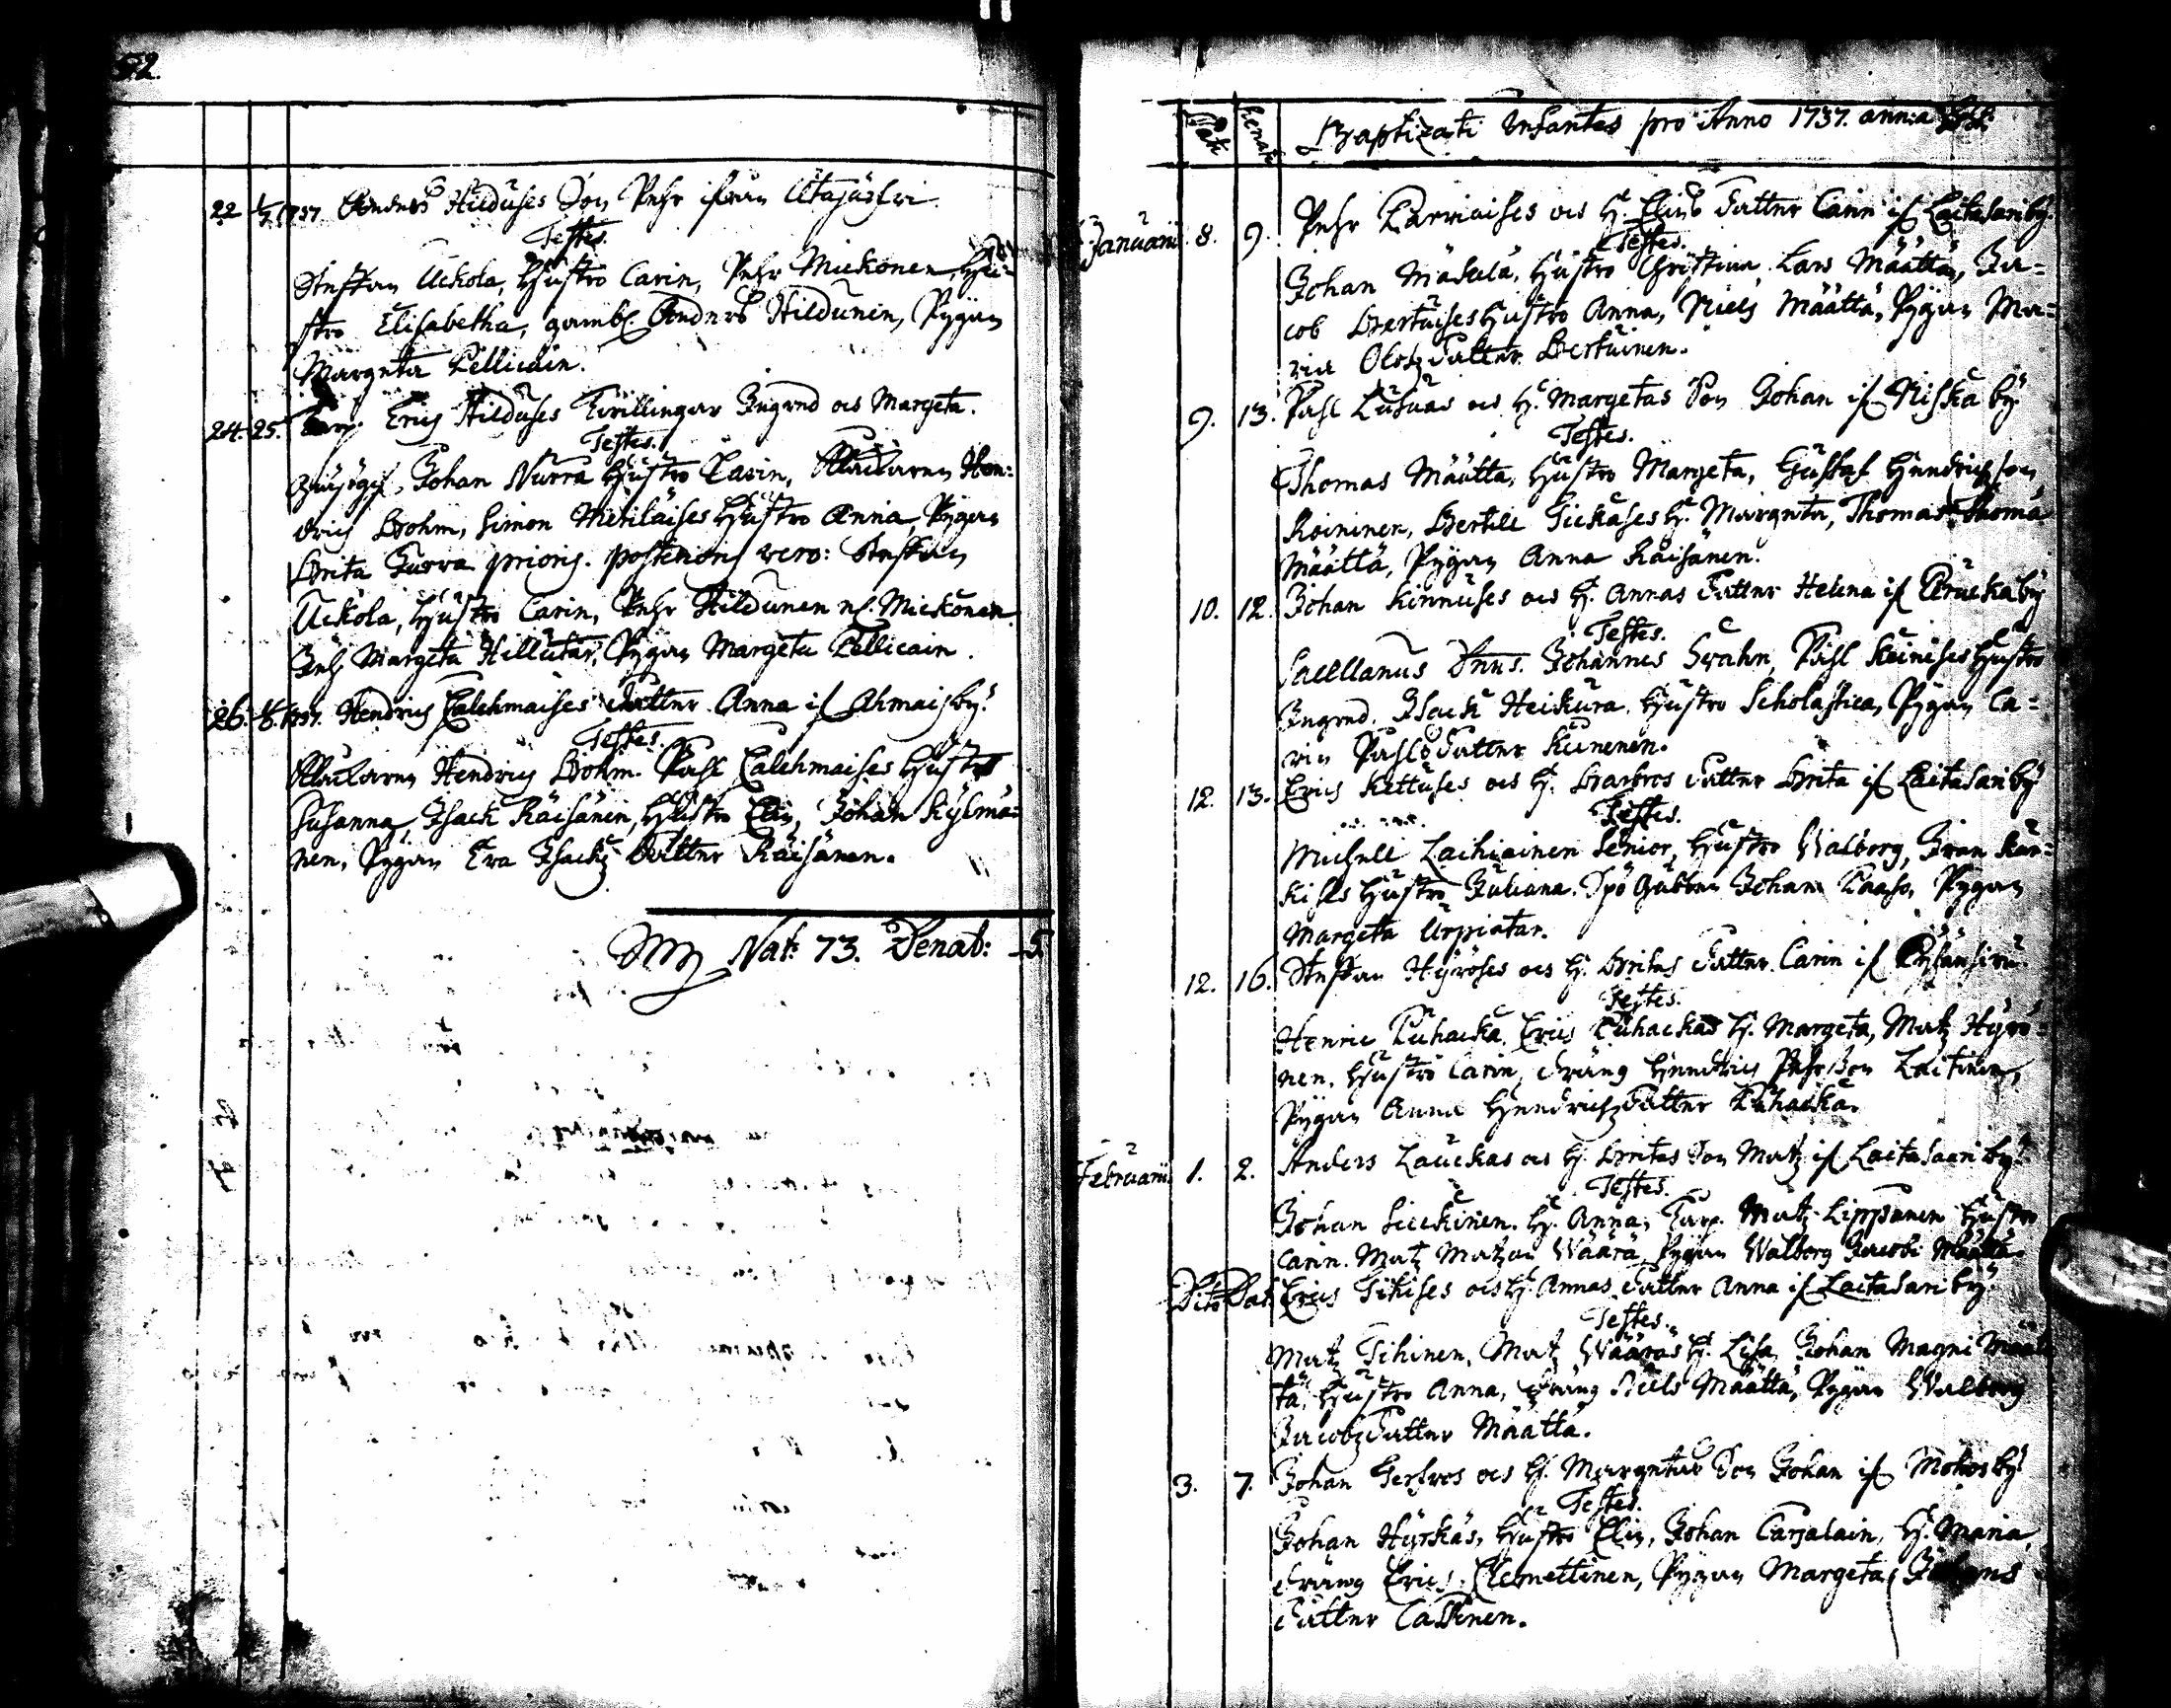 52.
22 1/1 1737 Anders Hilduses Son Pehr ifrån Utajärfwi
Testes.
Steffan Uckola, Hustro Carin, Pehr Mickonen, Hu-
stro Elisabetha, gambl. Anders Hildunin, Pygan
Margeta Pellicain.
24. 25. Erich Hilduses Twillingar Ingred och Margeta.
Testes.
Johan Nurra Hustro Carin, Klockaren Hen-
drich Bohm, Simon Metiläises Hustro Anna, Pygan
Brita Turva prioris. posterioris vero: Steffan
Uckola, Hustro Carin, Pehr Hildunen Mickonen.
Margeta Hillutar, Pygan Margeta Pellicain.
26. 1737. Hendrich Calehmaises Dotter Anna if Ahmas by.
Testes.
Klockaren Hendrich Bohm. Påhl Calehmaises Hustro
Susanna, Isach Räisänen, Hustro Elin, Johan Kylmä-
nen, Pygan Eva Isachz Dotter Räisänen.
Nat: 73. Denat: 5
Nati Renati Baptizati Infantes pro Anno 1737.
Januarii 8. 9. Pehr Karviaises och H. Elins Dotter Carin if Laitasari by.
Testes.
Johan Mäkelä, Hustro Christina. Lars Määttä, Ja-
cob Bertuises Hustro Anna, Niels Määttä, Pygan Ma-
ria Olofz Dotter Bertuinen.
9. 13. Påhl Luhuas och H. Margetas Son Johan if Niska by
Testes.
Thomas Määtta, Hustro Margeta, Gustaf Hendrichson
Roininen, Bertill Tickases H. Margeta, Thomas Thomä
Määttä, Pygan Anna Räisänen.
10. 12. Johan Kinnuses och H. Annas Dotter Helena if by
Testes.
Sacellanus Dnus. Johannes Svahn, Påhl Keinises Hustro
Ingred. Isach Heikura. Hustro Scholastica, Pygan Ca-
rin Påhls Dotter Kinenen.
12. 13. Erich Kettuses och H. Barbros Dotter Brita if Laitasari by
Testes.
Michell Laihiainen Senior, Hustro Walborg, Ivan Kar-
Hustro Juliana. Johan Paaso, Pygan
Margeta Urpiatar.
12. 16. Steffan Hyröses och H. Britas Dotter Carin if
Testes.
Henric Puhacka. Erics Puhackas H. Margeta, Matz Hyrö-
nen, Hustro Carin, Dräng Hendrich Pehrsson Laitinen,
Pygan Anna Hendrichz Dotter Puhacka.
Februarii 1. 2. Anders Lauckas och H. Britas Son Matz if Laitasari by.
Testes.
Johan Sieckinen. H. Anna, Matz Lippanen Hustro
Carin. Matz Matzon Wäärä, Pygan Walborg Jacobi Määttä.
Dito Dat. Erics Tihises och H. Annas Dotter Anna if Laitasari by
Testes.
Matz Tihinen, Matz Wääräs H. Lisa, Johan Magni Määt-
tä, Hustro Anna, Dräng Niels Määttä, Pygan Walborg
Jacobz Dotter Määttä.
3. 7. Johan Gerfvos och H. Margetas Son Johan if Mohos by
Testes.
Johan Hyrkäs, Hustro Elin, Johan Carjalain, H. Maria,
Dräng Erics Clemettinen, Pygan Margeta Johans
Dotter Cassinen.